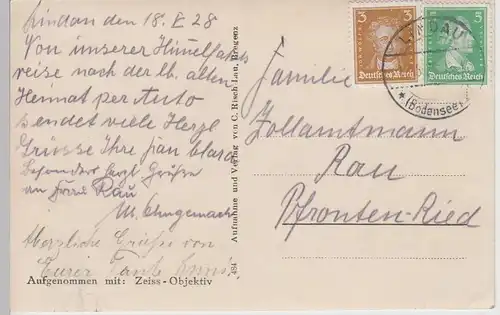 Lindau den 18. V. 28
Von unserer Himelfahrts
reise nach der lb. alten
Heimat per Auto
sendet viele Herzl
Grüsse Ihre
Besonders herzl. Grüße
an Frau Rau
Herzliche Grüße von
Eurer Tante
Aufgenommen mit: Zeiss-Objektiv
484
Aufnahme und Verlag von C. Risch Lau, Bregenz
3 3
Deutsches Reich
5 5
Deutsches Reich
LINDAU
(Bodensee)
Familie
Zollamtmann
Rau
Pfronten-Ried